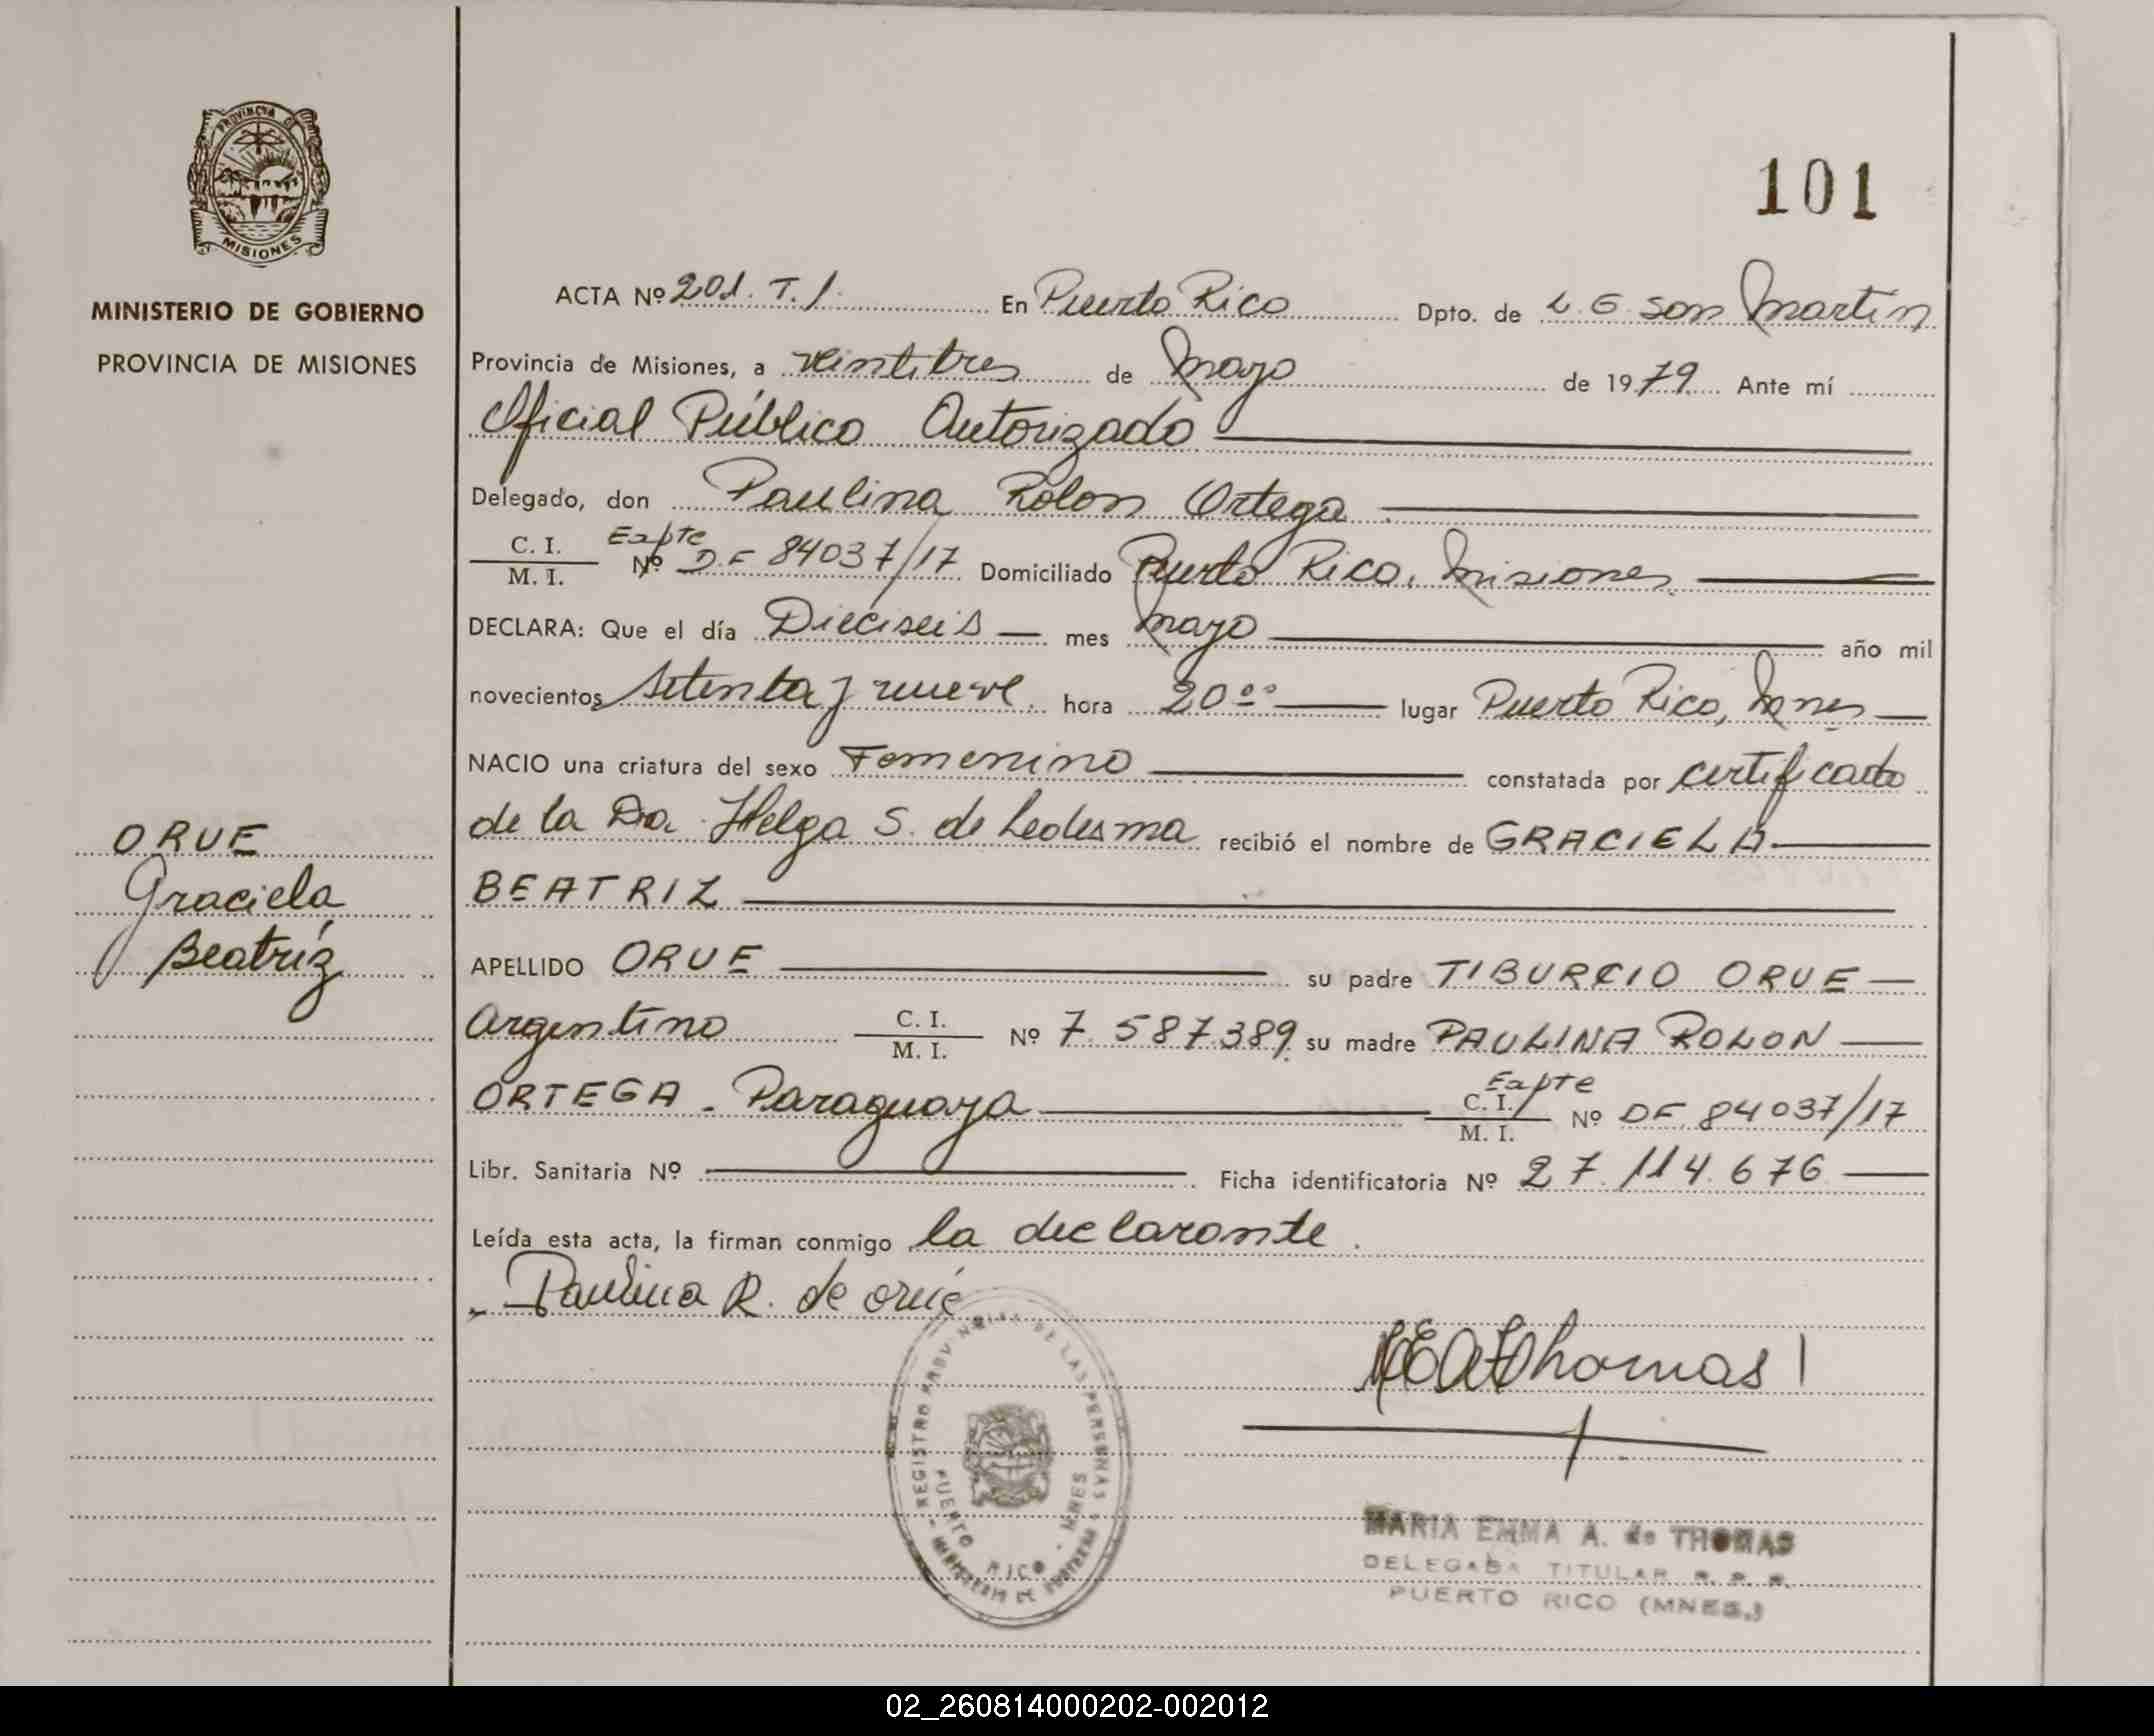 PROVINCIA DE
MISIONES
MINISTERIO DE GOBIERNO
PROVINCIA DE MISIONES
ORUE
Graciela
Beatríz
101
ACTA Nº 201. T. 1. En Puerto Rico Dpto. de L. G. San Martín
Provincia de Misiones, a veintitres de Mayo de 1979. Ante mí
Oficial Público Autorizado
Delegado, don Paulina Rolon Ortega
C. I. / M. I. Expte Nº D.F 84037/17 Domiciliado Puerto Rico, Misiones
DECLARA: Que el día Dieciseis mes Mayo año mil
novecientos setenta y nueve hora 20ºº lugar Puerto Rico, Mnes
NACIO una criatura del sexo Femenino constatada por certificado
de la Dra. Helga S. de Ledesma recibió el nombre de GRACIELA
BEATRIZ
APELLIDO ORUE su padre TIBURCIO ORUE
Argentino C. I. / M. I. Nº 7.587.389 su madre PAULINA ROLON
ORTEGA - Paraguaya Expte C. I. / M. I. Nº DF 84037/17
Libr. Sanitaria Nº Ficha identificatoria Nº 27.114.676
Leída esta acta, la firman conmigo la declarante.
Paulina R. de orué
REGISTRO PROVINCIAL DE LAS PERSONAS
PUERTO RICO - MNES
MINISTERIO DE GOBIERNO
MARIA EMMA A. de THOMAS
DELEGADA TITULAR R. P. P.
PUERTO RICO (MNES.)
02_260814000202-002012